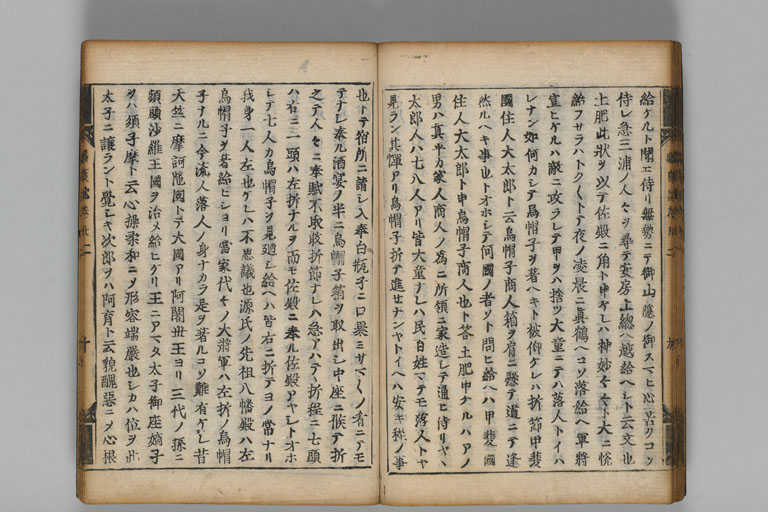 給ケルト聞エ侍リ無勢ニテ御山隠ノ御スマヒ心苦クコソ
侍レ急三浦ノ人々ヲ尋テ安房上総ヘ越給ヘシト云文也
土肥此状ヲ以テ佐殿ニ角ト申ケレハ神妙々々トテ大ニ悦
給フサラハトクトテ夜ノ凌晨ニ真鶴ヘコソ落給ヘ軍将
宣ヒケルハ敵ニ攻ラレテ甲ヲハ捨ツ大童ニテハ落人トイハ
レナン如何カシテ烏帽子ヲ著ヘキト被仰ケレハ折節甲斐
國住人大太郎ト云烏帽子商人箱ヲ肩ニ懸テ道ニテ逢
然ルヘキ事也トオホシテ何國ノ者ソト問ヒ給ヘハ甲斐國
住人大太郎ト申烏帽子商人也ト答土肥申ケルハアノ
男ハ真平カ家人商人ノ為ニ所領ニ家造シテ通ヒ侍リヤヽ
太郎人ハ七八人アリ皆大童ナレハ民百姓マテモ落人トヤ
見ラン其憚アリ烏帽子折テ進セナンヤトイヘハ安キ程ノ事
也トテ宿所ニ請シ入奉白瓶子ニ口裹ミサマ〱ノ肴ニテモ
テナシ奉ル酒宴ノ半ニ烏帽子箱ヲ取出シ中座ニ候テ折
之テ人々ニ奉賦不取敢折節ナレハ急アハテヽ折程ニ七頭
ハ右ニ一頭ハ左折ナルヲ而モ佐殿ニ奉ル佐殿アヤシトオホ
シテ七人カ烏帽子ヲ見廻シ給ヘハ皆右ニ折テヨノ常ナリ
我身一人左也ケレハ不思議也源氏ノ先祖八幡殿ハ左
烏帽子ヲ著給ヒシヨリ當家代々ノ大将軍ハ左折ノ烏帽
子ナルニ今流人落人ノ身ナカラ是ヲ著ルコソ難有ケレ昔
天竺ニ摩訶陀國トテ大國アリ阿闍世王ヨリ三代ノ孫ニ
頻頭沙羅王國ヲ治メ給ヒケリ王ニアマタ太子御座嫡子
ヲハ須子摩ト云心操柔和ニメ形容端嚴也シカハ位ヲ此
太子ニ譲ラント覺シキ次郎ヲハ阿育ト云貌醜惡ニメ心根